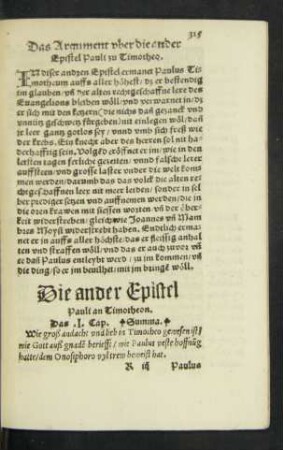 315
Das Argument vber die ander
Epistel Pauli zu Timotheo.
IN diser andren Epistel ermanet Paulus Ti⸗
motheum auffs aller höhest/ dz er bestendig
im glauben/ vñ der alten rechtgeschaffne lere des
Euangelions bleiben wöll/ vnd verwarnet in/ dz
er sich mit den ketzern/ die nichs dañ gezanck vnd
vnnütz geschwetz fürgeben/ nit einlegen wöl/ dañ
ir leer gantz gotlos sey/ vnnd vmb sich freß wie
der krebs. Ein knecht aber des herren sol nit ha⸗
derhafftig sein. Volgts eröffnet er im/ wie in den
letsten tagen ferliche gezeiten/ vnnd falsche lerer
auffsteen/ vnd grosse laster vnder die welt kom⸗
men werden/ darumb das das volck die alten re⸗
chtgeschaffnen leer nit meer leiden/ sonder in sel
ber prediger setzen vnd auffnemen werden/ die in
die oren krawen mit süessen worten/ vñ der ober⸗
keit widerstreben/ gleich wie Joannes vñ Mam
bres Moysi widerstrebt haben. Endtlich erma⸗
net er in auffs aller höchste/ das er fleissig anhal⸗
ten vnd straffen wöll/ vnd das er auch zuuor vñ
er dañ Paulus entleybt werd/ zu im kommen/ vñ
die ding/ so er im beuilhet/ mit im bringē wöll.
Die ander Epistel
Pauli an Timotheon.
Das .I. Cap. Summa.
Wie groß andacht vnd lieb in Timotheo gewesen ist/
wie Gott auß gnadē berüefft/ wie Paulus veste hoffnūg
hatte/ dem Onosiphoro vil trew beweist hat.
R iij Paulus